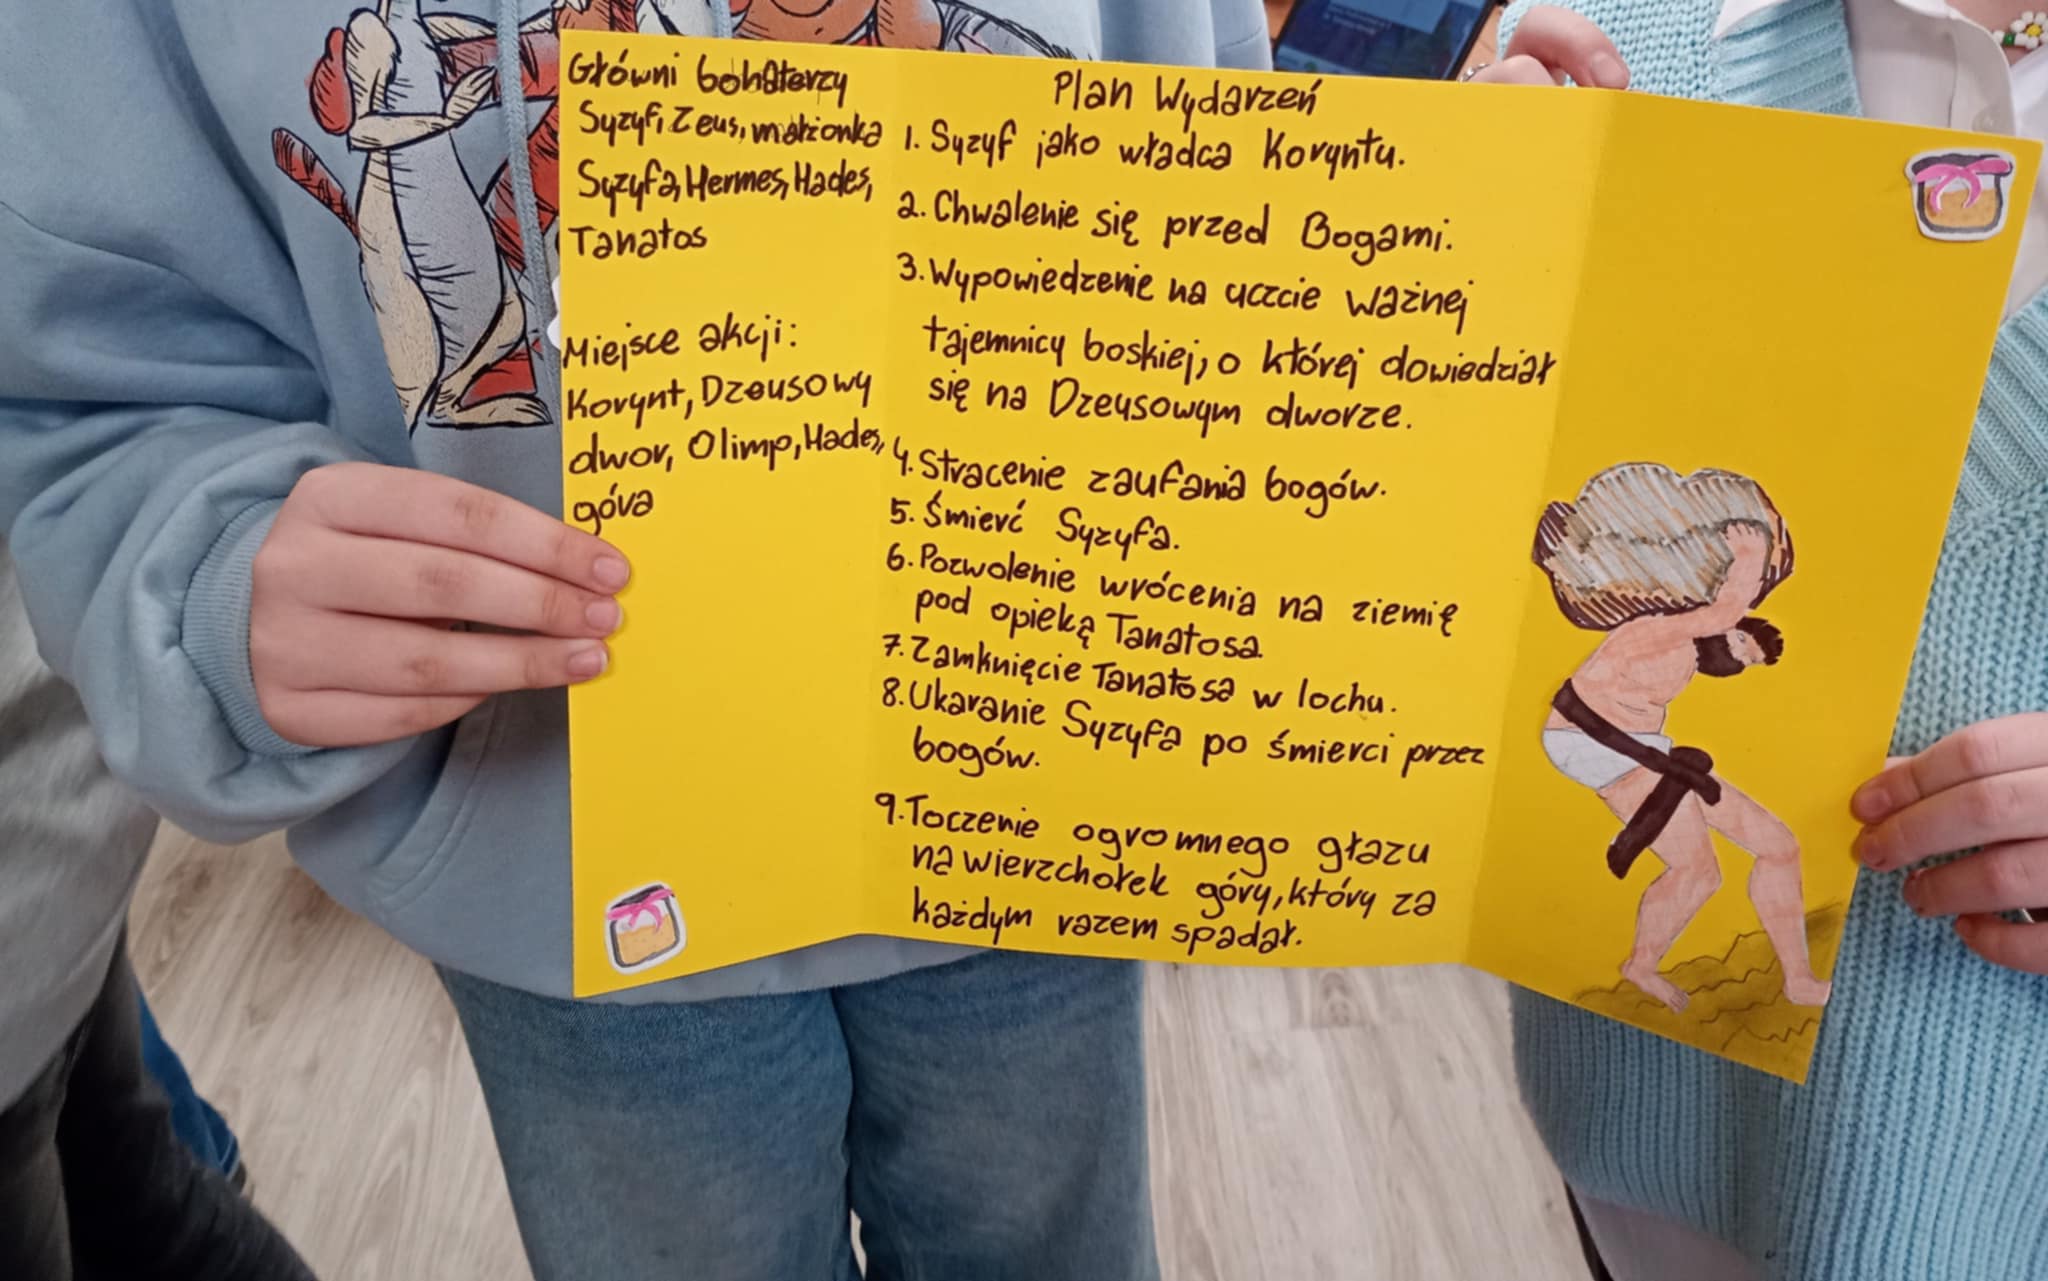 Główni bohaterzy
Syzyf, Zeus, małżonka
Syzyfa, Hermes, Hades,
Tanatos
Miejsce akcji:
Korynt, Dzeusowy
dwor, Olimp, Hades,
góra
Plan Wydarzeń
1. Syzyf jako władca Koryntu.
2. Chwalenie się przed Bogami.
3. Wypowiedzenie na uczcie ważnej
tajemnicy boskiej, o której dowiedział
się na Dzeusowym dworze.
4. Stracenie zaufania bogów.
5. Śmierć Syzyfa.
6. Pozwolenie wrócenia na ziemię
pod opieką Tanatosa.
7. Zamknięcie Tanatosa w lochu.
8. Ukaranie Syzyfa po śmierci przez
bogów.
9. Toczenie ogromnego głazu
na wierzchołek góry, który za
każdym razem spadał.